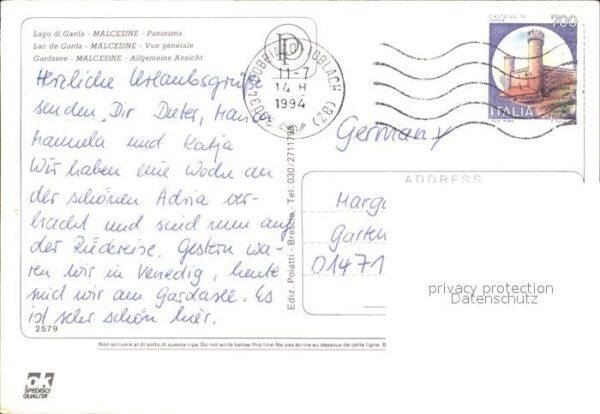 Lago di Garda - MALCESINE - Panorama
Lac de Garda - MALCESINE - Vue générale
Gardasee - MALCESINE - Allgemeine Ansicht
Herzliche Urlaubsgrüße
senden Dir Dieter,
Manuela und Katja
Wir haben eine Woche an
der schönen Adria ver-
bracht und sind nun auf
der Rückreise. Gestern wa-
ren wir in Venedig, heute
sind wir am Gardasee. Es
ist sehr schön hier.
2579
ok
SPEDISCI
QUALITA'
Ediz. Poiatti - Brescia - Tel. 030/2711798
39034 DOBBIACO TOBLACH (BZ)
11-7
14 H
1994
700
ITALIA
Germany
ADDRESS
Marga
Garten
01471
privacy protection
Datenschutz
Non scrivere al di sotto di questa riga. Do not write below this line. Ne pas écrire au dessous de cette ligne